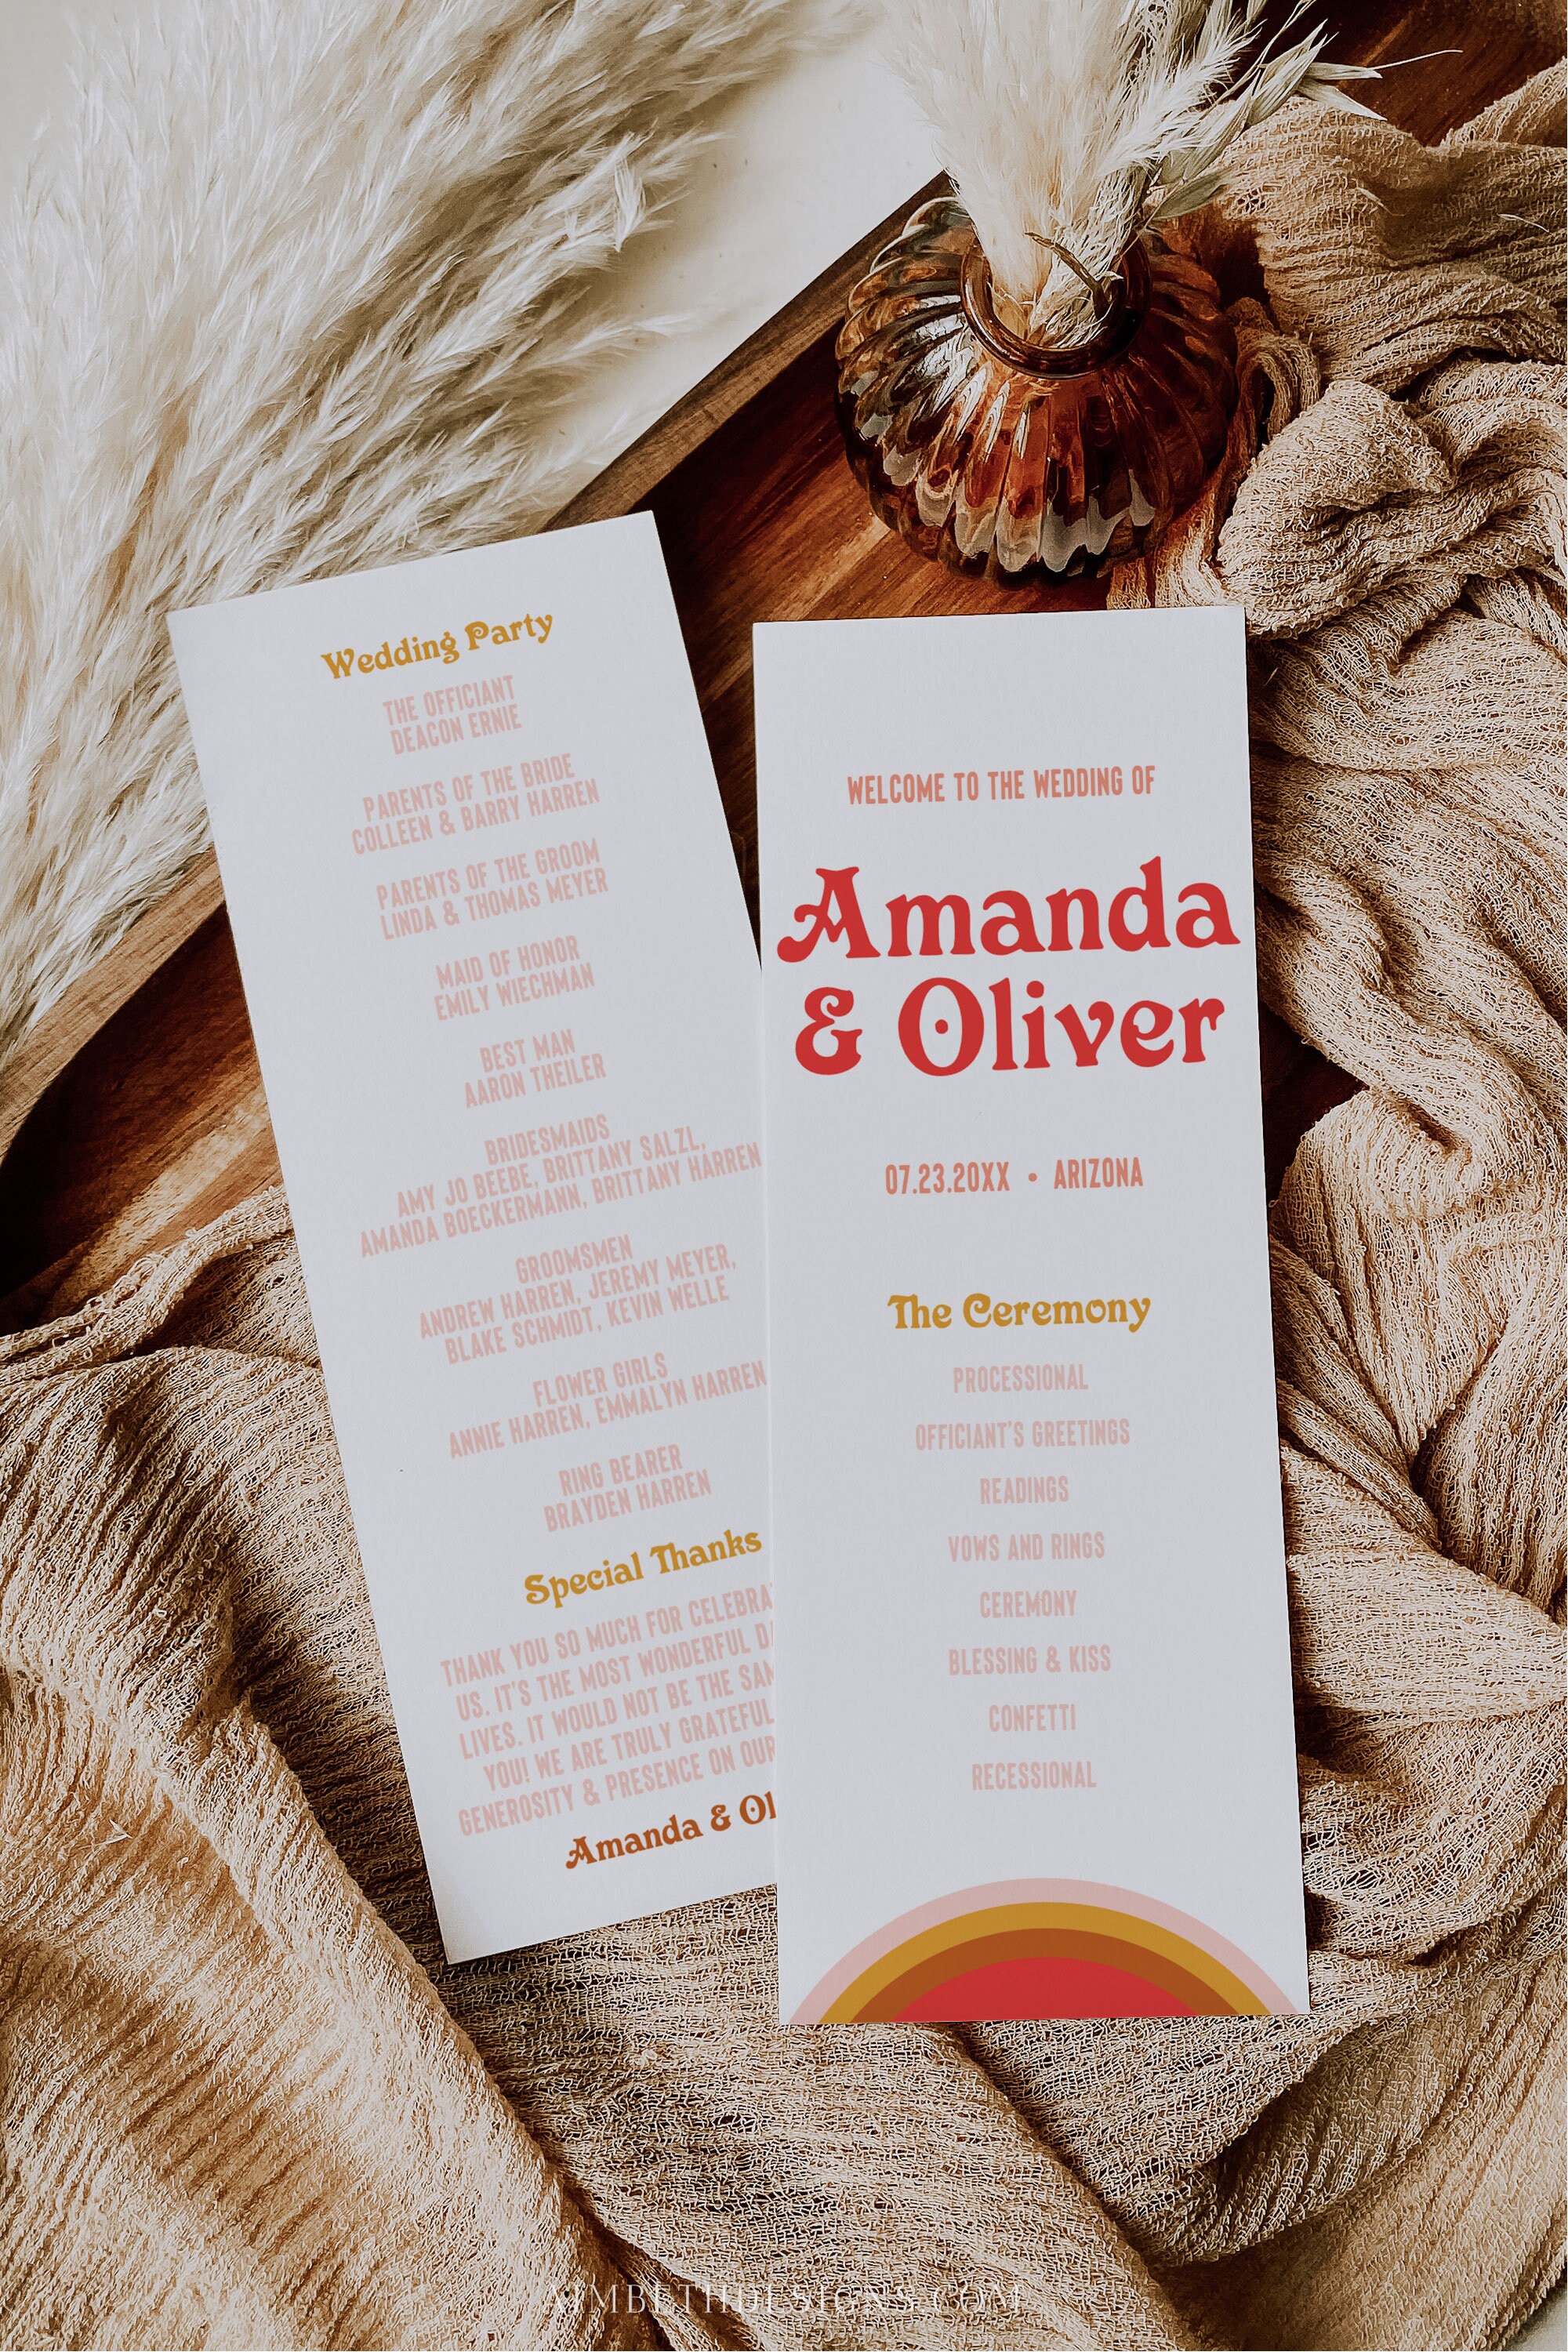 Wedding Party
THE OFFICIANT
DEACON ERNIE
PARENTS OF THE BRIDE
COLLEEN & BARRY HARREN
PARENTS OF THE GROOM
LINDA & THOMAS MEYER
MAID OF HONOR
EMILY WIECHMAN
BEST MAN
AARON THEILER
BRIDESMAIDS
AMY JO BEEBE, BRITTANY SALZL,
AMANDA BOECKERMANN, BRITTANY HARREN
GROOMSMEN
ANDREW HARREN, JEREMY MEYER,
BLAKE SCHMIDT, KEVIN WELLE
FLOWER GIRLS
ANNIE HARREN, EMMALYN HARREN
RING BEARER
BRAYDEN HARREN
Special Thanks
THANK YOU SO MUCH FOR
US. IT'S THE MOST WONDERFUL
LIVES. IT WOULD NOT BE THE
YOU! WE ARE TRULY GRATEFUL
GENEROSITY & PRESENCE ON OUR
Amanda &
WELCOME TO THE WEDDING OF
Amanda
& Oliver
07.23.20XX • ARIZONA
The Ceremony
PROCESSIONAL
OFFICIANT'S GREETINGS
READINGS
VOWS AND RINGS
CEREMONY
BLESSING & KISS
CONFETTI
RECESSIONAL
AIMBETHDESIGNS.COM